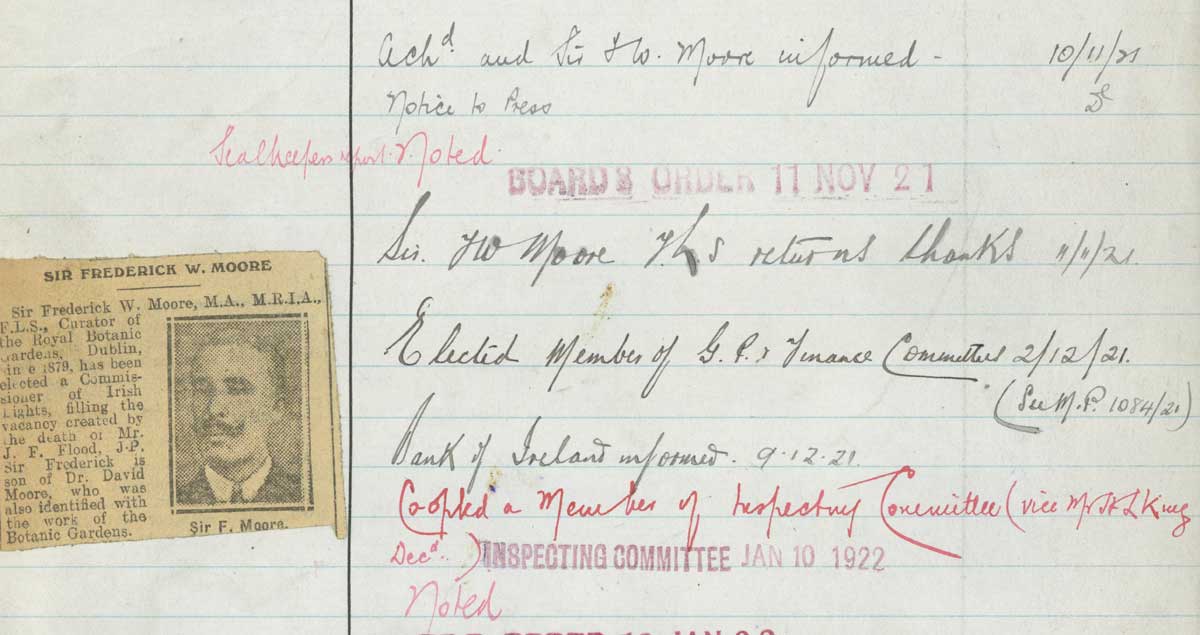 Ack^d and Sir F W. Moore informed - 10/11/21
Notice to Press
Sealkeepers report. Noted
BOARDS ORDER 11 NOV 21
Sir. FW Moore returns thanks 11/11/21.
Elected Member of G. P. & Finance Committees 2/12/21.
(See M.P. 1084/21)
Bank of Ireland informed. 9.12.21.
Coopted a Member of Inspecting Committee (vice Mr H L King
Dec^d.)
INSPECTING COMMITTEE JAN 10 1922
Noted
SIR FREDERICK W. MOORE
Sir Frederick W. Moore, M.A., M.R.I.A.,
F.L.S., Curator of
the Royal Botanic
Gardens, Dublin,
sin e 1879, has been
elected a Commis-
sioner of Irish
Lights, filling the
vacancy created by
the death of Mr.
J. F. Flood, J.P.
Sir Frederick is
son of Dr. David
Moore, who was
also identified with
the work of the
Botanic Gardens.
Sir F. Moore.